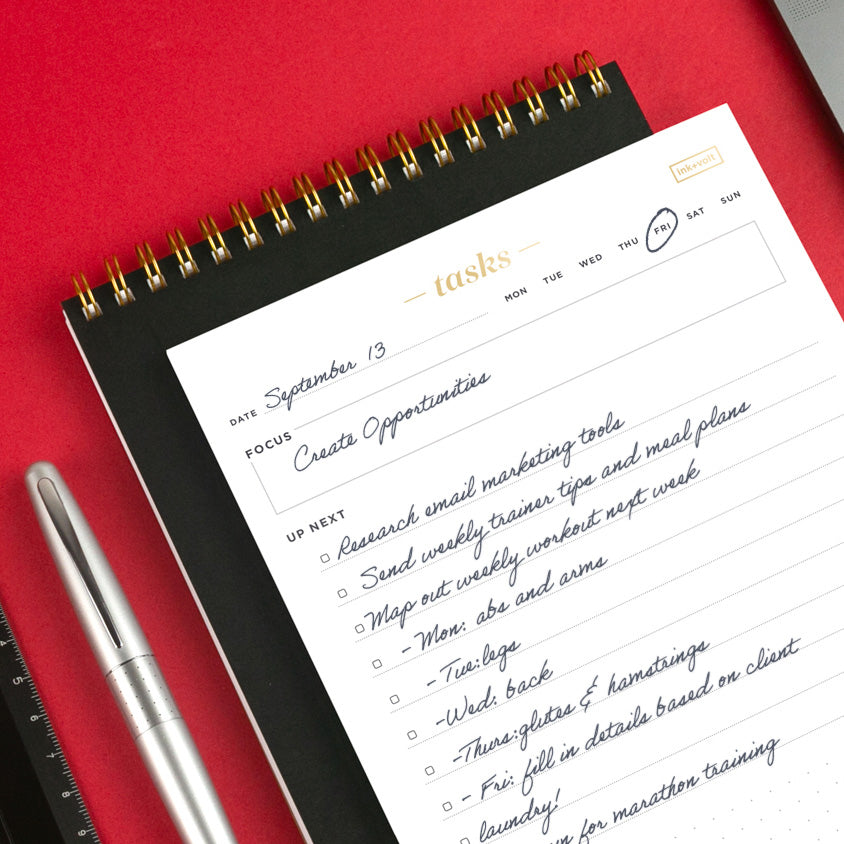 ink+volt
tasks
MON TUE WED THU FRI SAT SUN
DATE September 13
FOCUS
Create Opportunities
UP NEXT
Research email marketing tools
Send weekly trainer tips and meal plans
Map out weekly workout next week
- Mon: abs and arms
- Tue: legs
- Wed: back
- Thurs: glutes & hamstrings
- Fri: fill in details based on client
laundry!
for marathon training
4
5
6
7
8
9